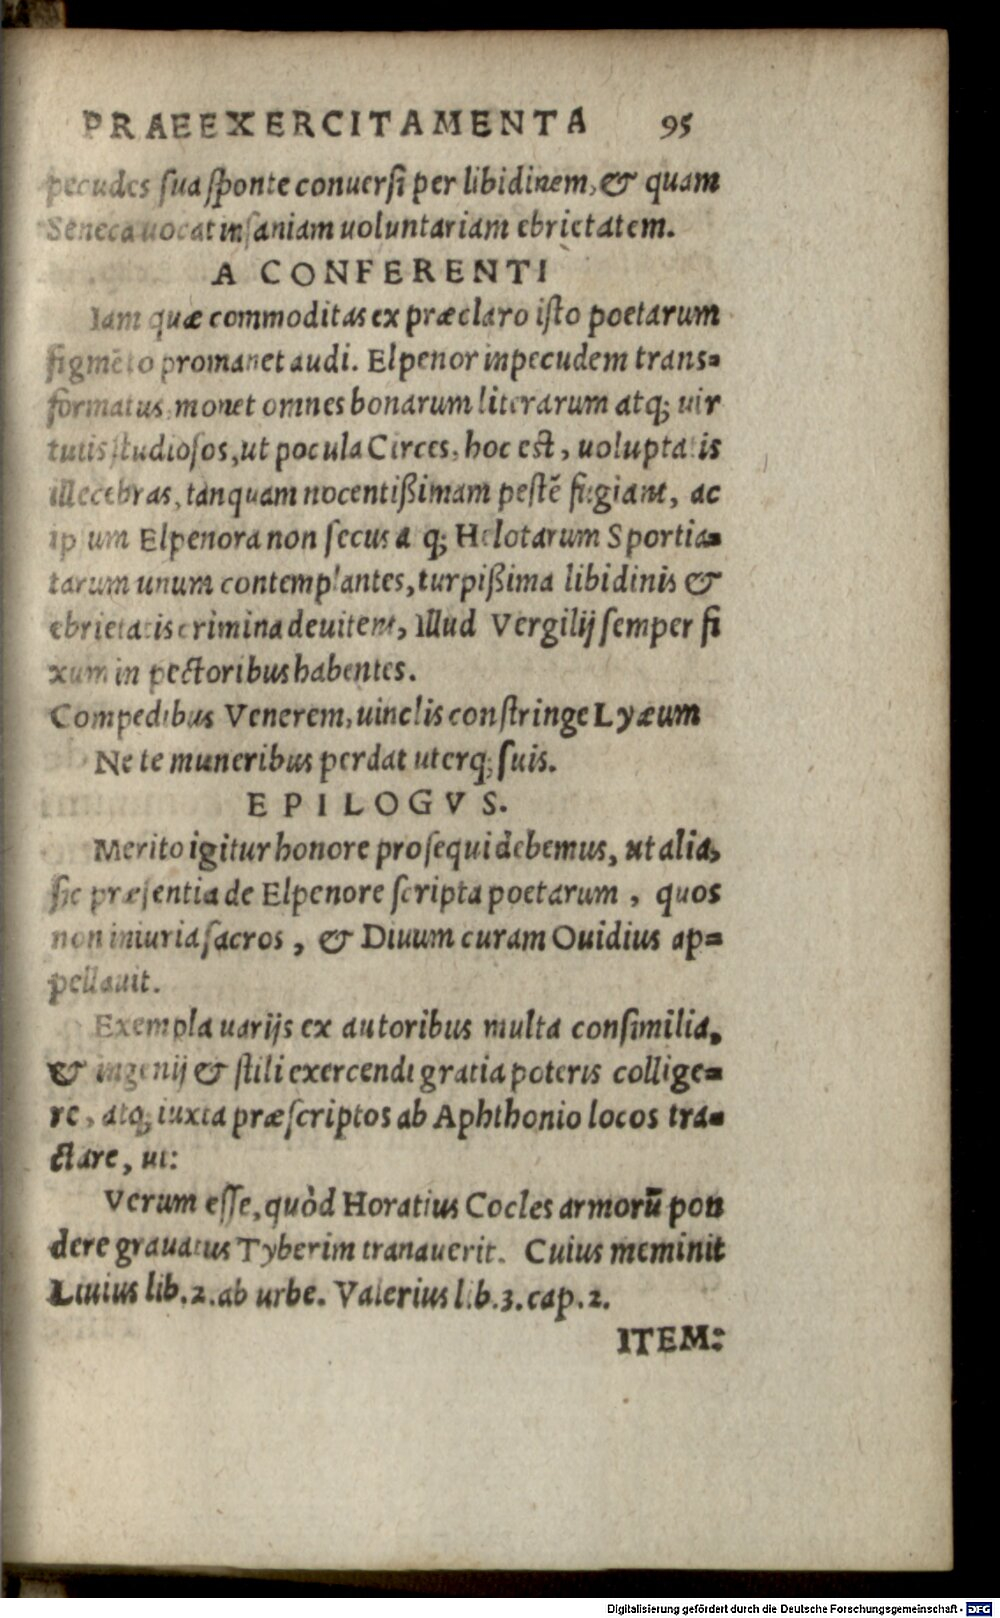 PRAEEXERCITAMENTA 95
pecudes sua sponte conuersi per libidinem, & quam
Seneca uocat insaniam uoluntariam ebrietatem.
A CONFERENTI
Iam quæ commoditas ex præclaro isto poetarum
figmēto promanet audi. Elpenor in pecudem trans-
formatus, monet omnes bonarum literarum atq; uir
tutis studiosos, ut pocula Circes, hoc est, uoluptatis
illecebras, tanquam nocentißimam pestē fugiant, ac
ipsum Elpenora non secus a q; Helotarum Sportia-
tarum unum contemplantes, turpißima libidinis &
ebrietatis crimina deuitent, illud Vergilij semper fi
xum in pectoribus habentes.
Compedibus Venerem, uinclis constringe Lyæum
Ne te muneribus perdat uterq; suis.
EPILOGVS.
Merito igitur honore prosequi debemus, ut alia,
sic præsentia de Elpenore scripta poetarum, quos
non iniuria sacros, & Diuum curam Ouidius ap-
pellauit.
Exempla uarijs ex autoribus multa consimilia,
& ingenij & stili exercendi gratia poteris collige-
re, atq; iuxta præscriptos ab Aphthonio locos tra-
ctare, ut:
Verum esse, quòd Horatius Cocles armorū pon
dere grauatus Tyberim tranauerit. Cuius meminit
Liuius lib. 2. ab urbe. Valerius lib. 3. cap. 2.
ITEM:
Digitalisierung gefördert durch die Deutsche Forschungsgemeinschaft - DFG